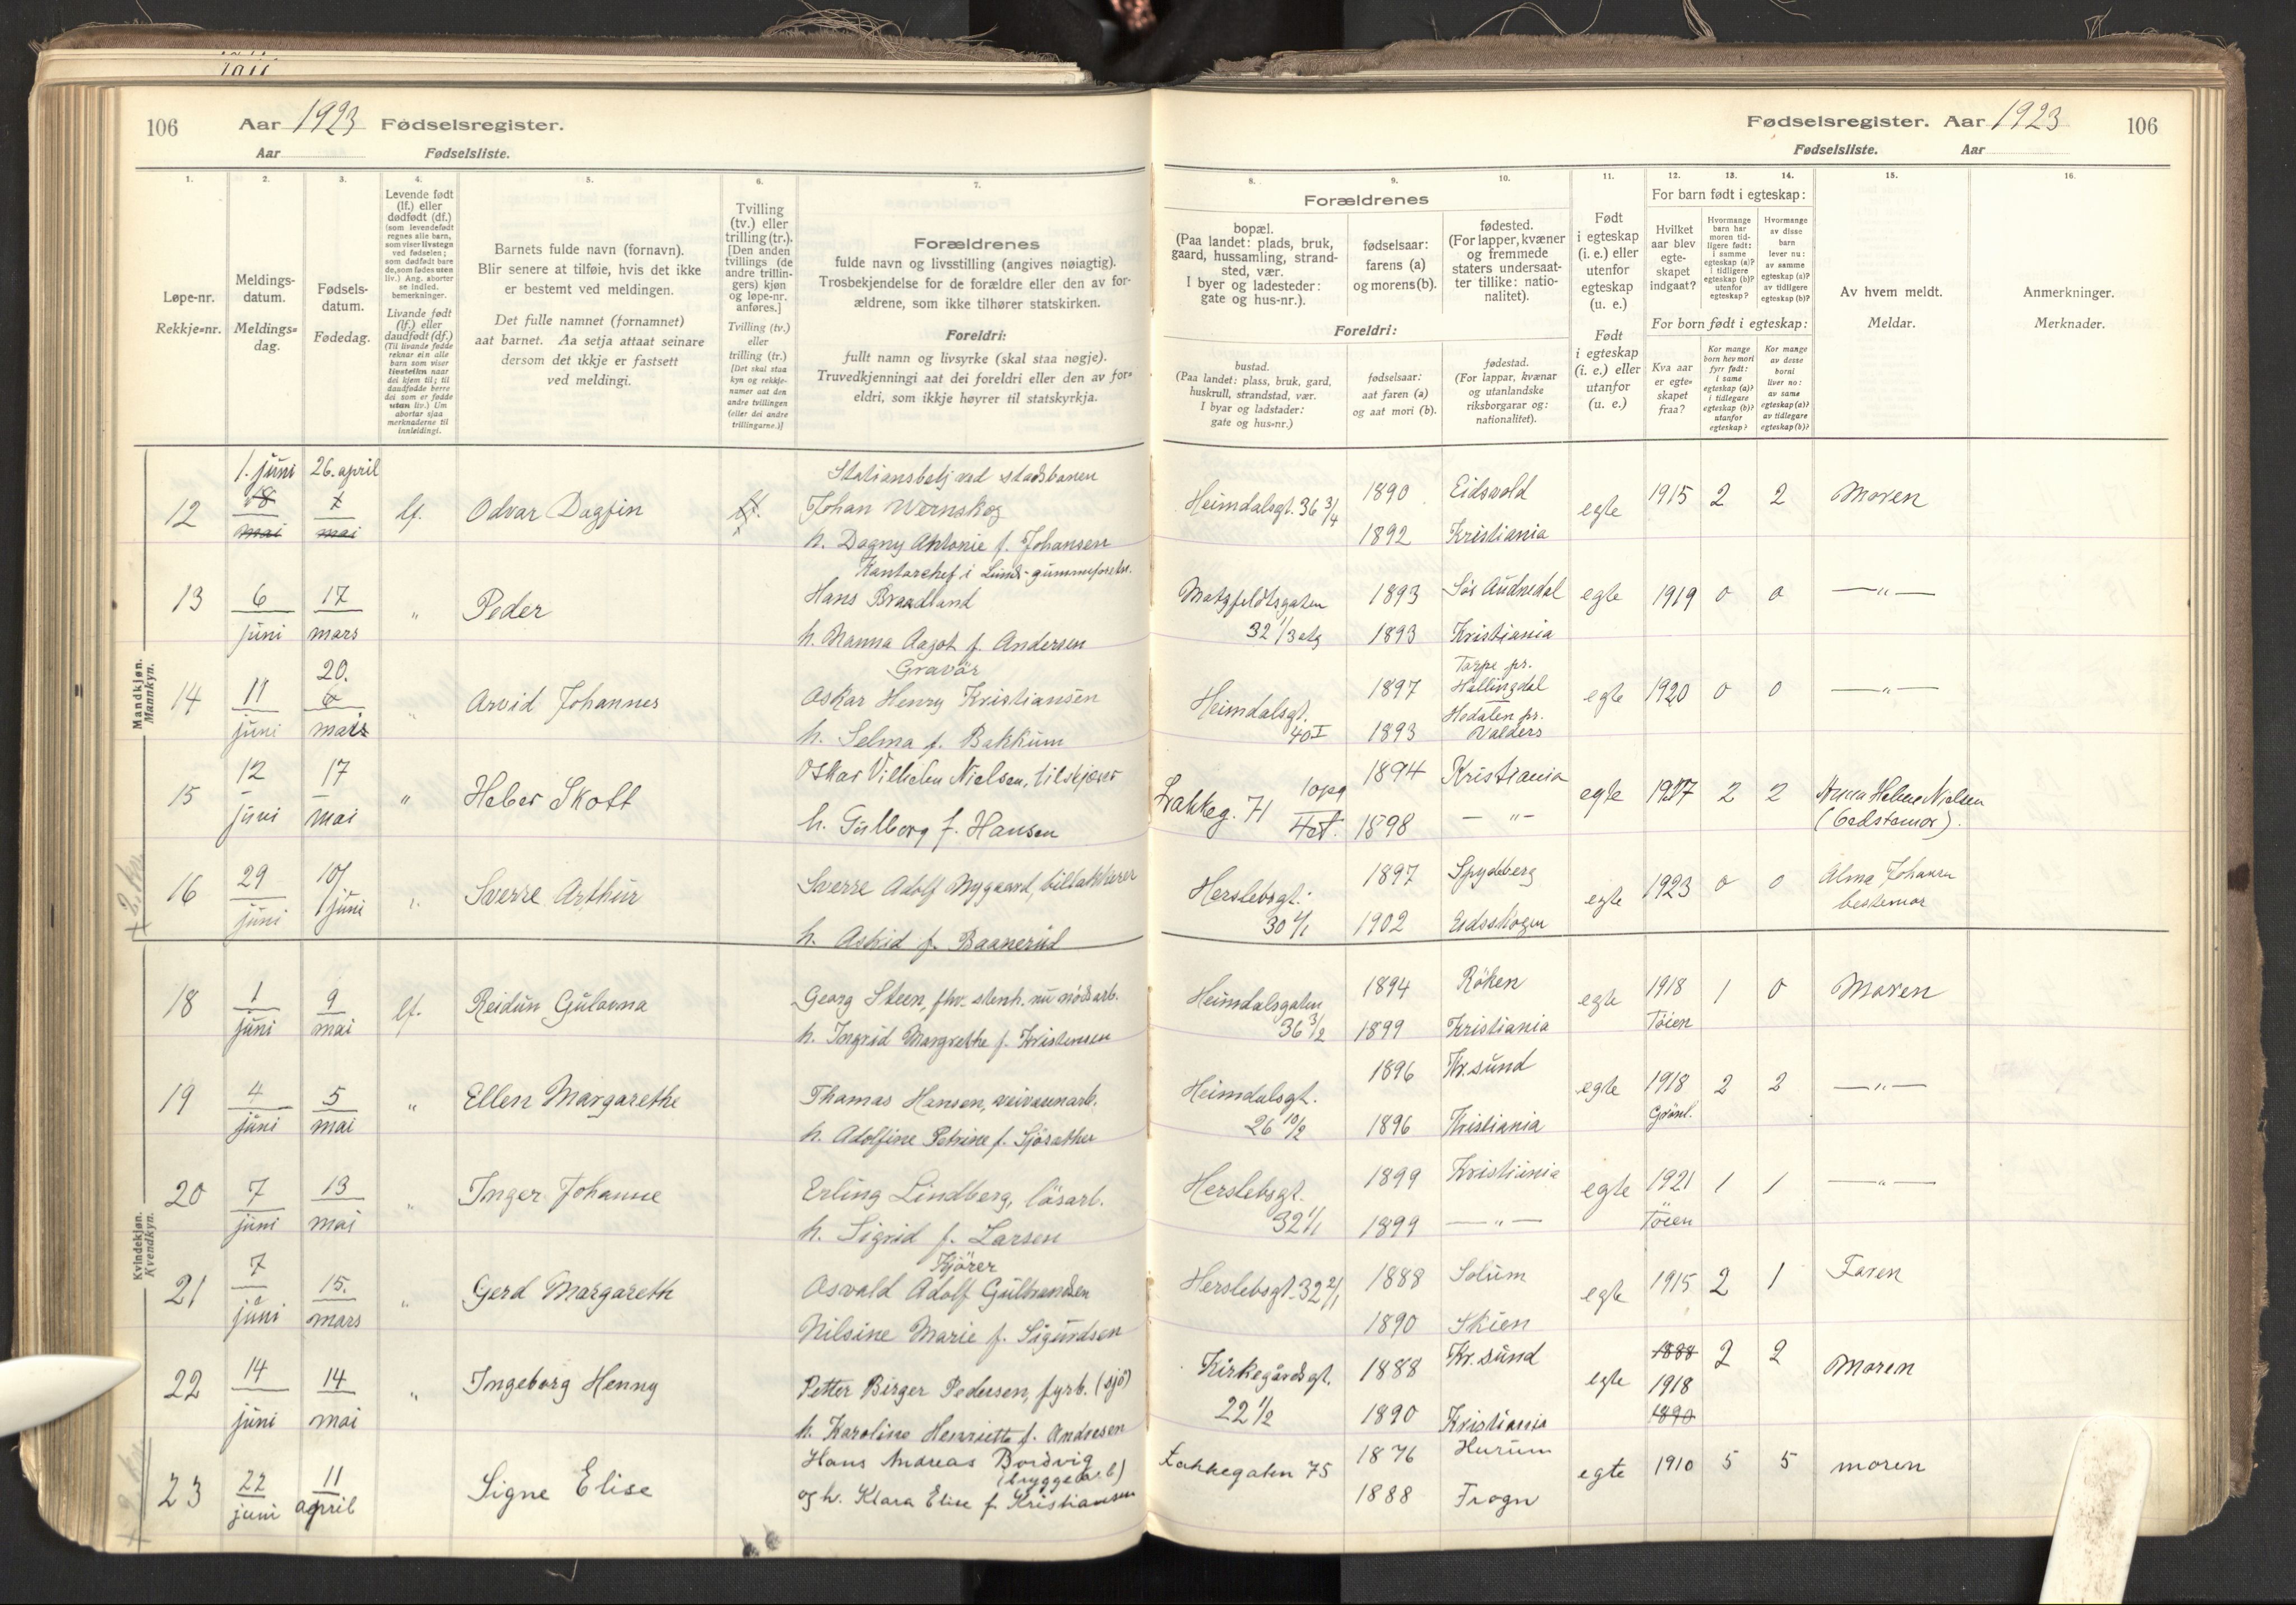 106 Aar 1923 Fødselsregister.
Aar Fødselsliste.
1. 2. 3. 4. 5. 6. 7.
Løpe-nr.
Rekkje=nr.
Meldings-
datum.
Meldings=
dag.
Fødsels-
datum.
Fødedag.
Levende født
(lf.) eller
dødfødt (df.)
(som levendefødt
regnes alle barn,
som viser livstegn
ved fødselen;
som dødfødt bare
de, som fødes uten
liv.) Ang. aborter
se indled.
bemerkninger.
Livande født
(lf.) eller
daudfødt (df.)
(Til livande fødde
reknar ein alle
barn som viser
livsteikn naar
dei kjem til; til
daudfødde berre
dei som er fødde
utan liv.) Um
abortar sjaa
merknaderne til
innleidingi.
Barnets fulde navn (fornavn).
Blir senere at tilføie, hvis det ikke
er bestemt ved meldingen.
Det fulle namnet (fornamnet)
aat barnet. Aa setja attaat seinare
dersom det ikkje er fastsett
ved meldingi.
Tvilling
(tv.) eller
trilling (tr.).
[Den anden
tvillings (de
andre trillin-
gers) kjøn
og løpe-nr.
anføres.]
Tvilling (tv.)
eller
trilling (tr.)
[Det skal staa
kyn og rekkje-
numer aat den
andre tvillingen
(eller dei andre
trillingarne.)]
Forældrenes
fulde navn og livsstilling (angives nøiagtig).
Trosbekjendelse for de forældre eller den av for-
ældrene, som ikke tilhører statskirken.
Foreldri:
fullt namn og livsyrke (skal staa nøgje).
Truvedkjenningi aat dei foreldri eller den av for=
eldri, som ikkje høyrer til statskyrkja.
Mandkjøn.
Mannkyn.
1. juni 26. april Stationsbetj. ved stadsbanen
12 18 mai 1 mai lf. Odvar Dagfin Johan Wernskog
h. Dagny Antonie f. Johansen
13 6 juni 17 mars " Peder Hans Braadland
h. Nanna Aagot f. Andersen
Gravör
14 11 juni 20. 6 mars " Arvid Johannes Oskar Henry Kristiansen
h. Selma f. Bakkum
15 12 juni 17 mai " Heber Skott Oskar Vilhelm Nielsen, tilskjærer
h. Gulborg f. Hansen
16 29 juni 10/juni " Sverre Arthur Sverre Adolf Nygaard, billakkerer
h. Astrid f. Baanerud
Kvindekjøn.
Kvendkyn.
18 1 juni 9 mai lf. Reidun Gulavna Georg Steen, fhv. stenh. nu nødsarb.
h. Ingrid Margrethe f. Kristensen
19 4 juni 5 mai " Ellen Margarethe Thomas Hansen, veivæsenarb.
h. Adolfine Petrine f. Sjøsæther
20 7 juni 13 mai " Inger Johanne Erling Lindberg, løsarb.
h. Sigrid f. Larsen
Kjörer
21 7 juni 15. mars " Gerd Margareth Osvald Adolf Gulbrandsen
Nilsine Marie f. Sigurdsen
22 14 juni 14 mai " Ingeborg Henny Petter Birger Pedersen, fyrb. (sjø)
h. Karoline Henriette f. Andresen
23 22 juni 11 april Signe Elise Hans Andreas Bordvig
(bryggearb)
og h. Klara Elise f. Kristiansen
Fødselsregister. Aar 1923 106
Fødselsliste. Aar
8. 9. 10. 11. 12. 13. 14. 15. 16.
Forældrenes
bopæl.
(Paa landet: plads, bruk,
gaard, hussamling, strand-
sted, vær.
I byer og ladesteder:
gate og hus-nr.).
fødselsaar:
farens (a)
og morens (b).
fødested.
(For lapper, kvæner
og fremmede
staters undersaat-
ter tillike: natio-
nalitet).
Foreldri:
bustad.
(Paa landet: plass, bruk, gard,
huskrull, strandstad, vær.
I byar og ladstader:
gate og hus=nr.)
fødselsaar:
aat faren (a)
og aat mori (b).
fødestad.
(For lappar, kvænar
og utanlandske
riksborgarar og:
nationalitet).
Født
i egteskap
(i. e.) eller
utenfor
egteskap
(u. e.)
Født
i egteskap
(i. e.) eller
utanfor
(u. e.)
For barn født i egteskap:
Hvilket
aar blev
egte-
skapet
indgaat?
Hvormange
barn har
moren tid-
ligere født:
i samme
egteskap (a)?
i tidligere
egteskap (b)?
utenfor
egteskap?
Hvormange
av disse
barn
lever nu:
av samme
egteskap (a)?
av tidligere
egteskap (b)?
For born født i egteskap:
Kva aar
er egte=
skapet
fraa?
Kor mange
born hev mori
fyrr født:
i same
egteskap (a)?
i tidlegare
egteskap (b)?
utanfor
egteskap?
Kor mange
av desse
borni
liver no:
av same
egteskap (a)?
av tidlegare
egteskap (b)?
Av hvem meldt.
Meldar.
Anmerkninger.
Merknader.
Heimdalsgt. 36 3/4 1890 Eidsvold egte 1915 2 2 Moren
1892 Kristiania
1893 Sør Audnedal egte 1919 0 0 —"—
32 1/3 etg 1893 Kristiania
Heimdalsgt. 1897 Torpe pr. Hallingdal egte 1920 0 0 —"—
40 I 1893 Hedalen pr. Valders
Lakkeg. 71 1opg 1894 Kristiania egte 1917 2 2 Anna Helene Nielsen
4et. 1898 —"— (bedstemor).
Herslebsgt. 1897 Spydeberg egte 1923 0 0 Alma Johansen
30 4/1 1902 Eidsskogen bestemor
Heimdalsgaten 1894 Røken egte 1918 1 0 Moren
36 3/2 1899 Kristiania Töien
Heimdalsgt. 1896 Kr.sund egte 1918 2 2 —"—
26 10/2 1896 Kristiania Grönl.
Herslebsgt. 1899 Kristiania egte 1921 1 1 —"—
32 1/1 1899 —"— Töien
Herslebsgt. 32 2/1 1888 Solum egte 1915 2 1 Faren
1890 Skien
Kirkegårdsgt. 1888 Kr.sund egte 1888 1918 2 2 Moren
22 1/2 1890 Kristiania 1890
Lakkegaten 75 1876 Hurum egte 1910 5 5 moren
1888 Frogn